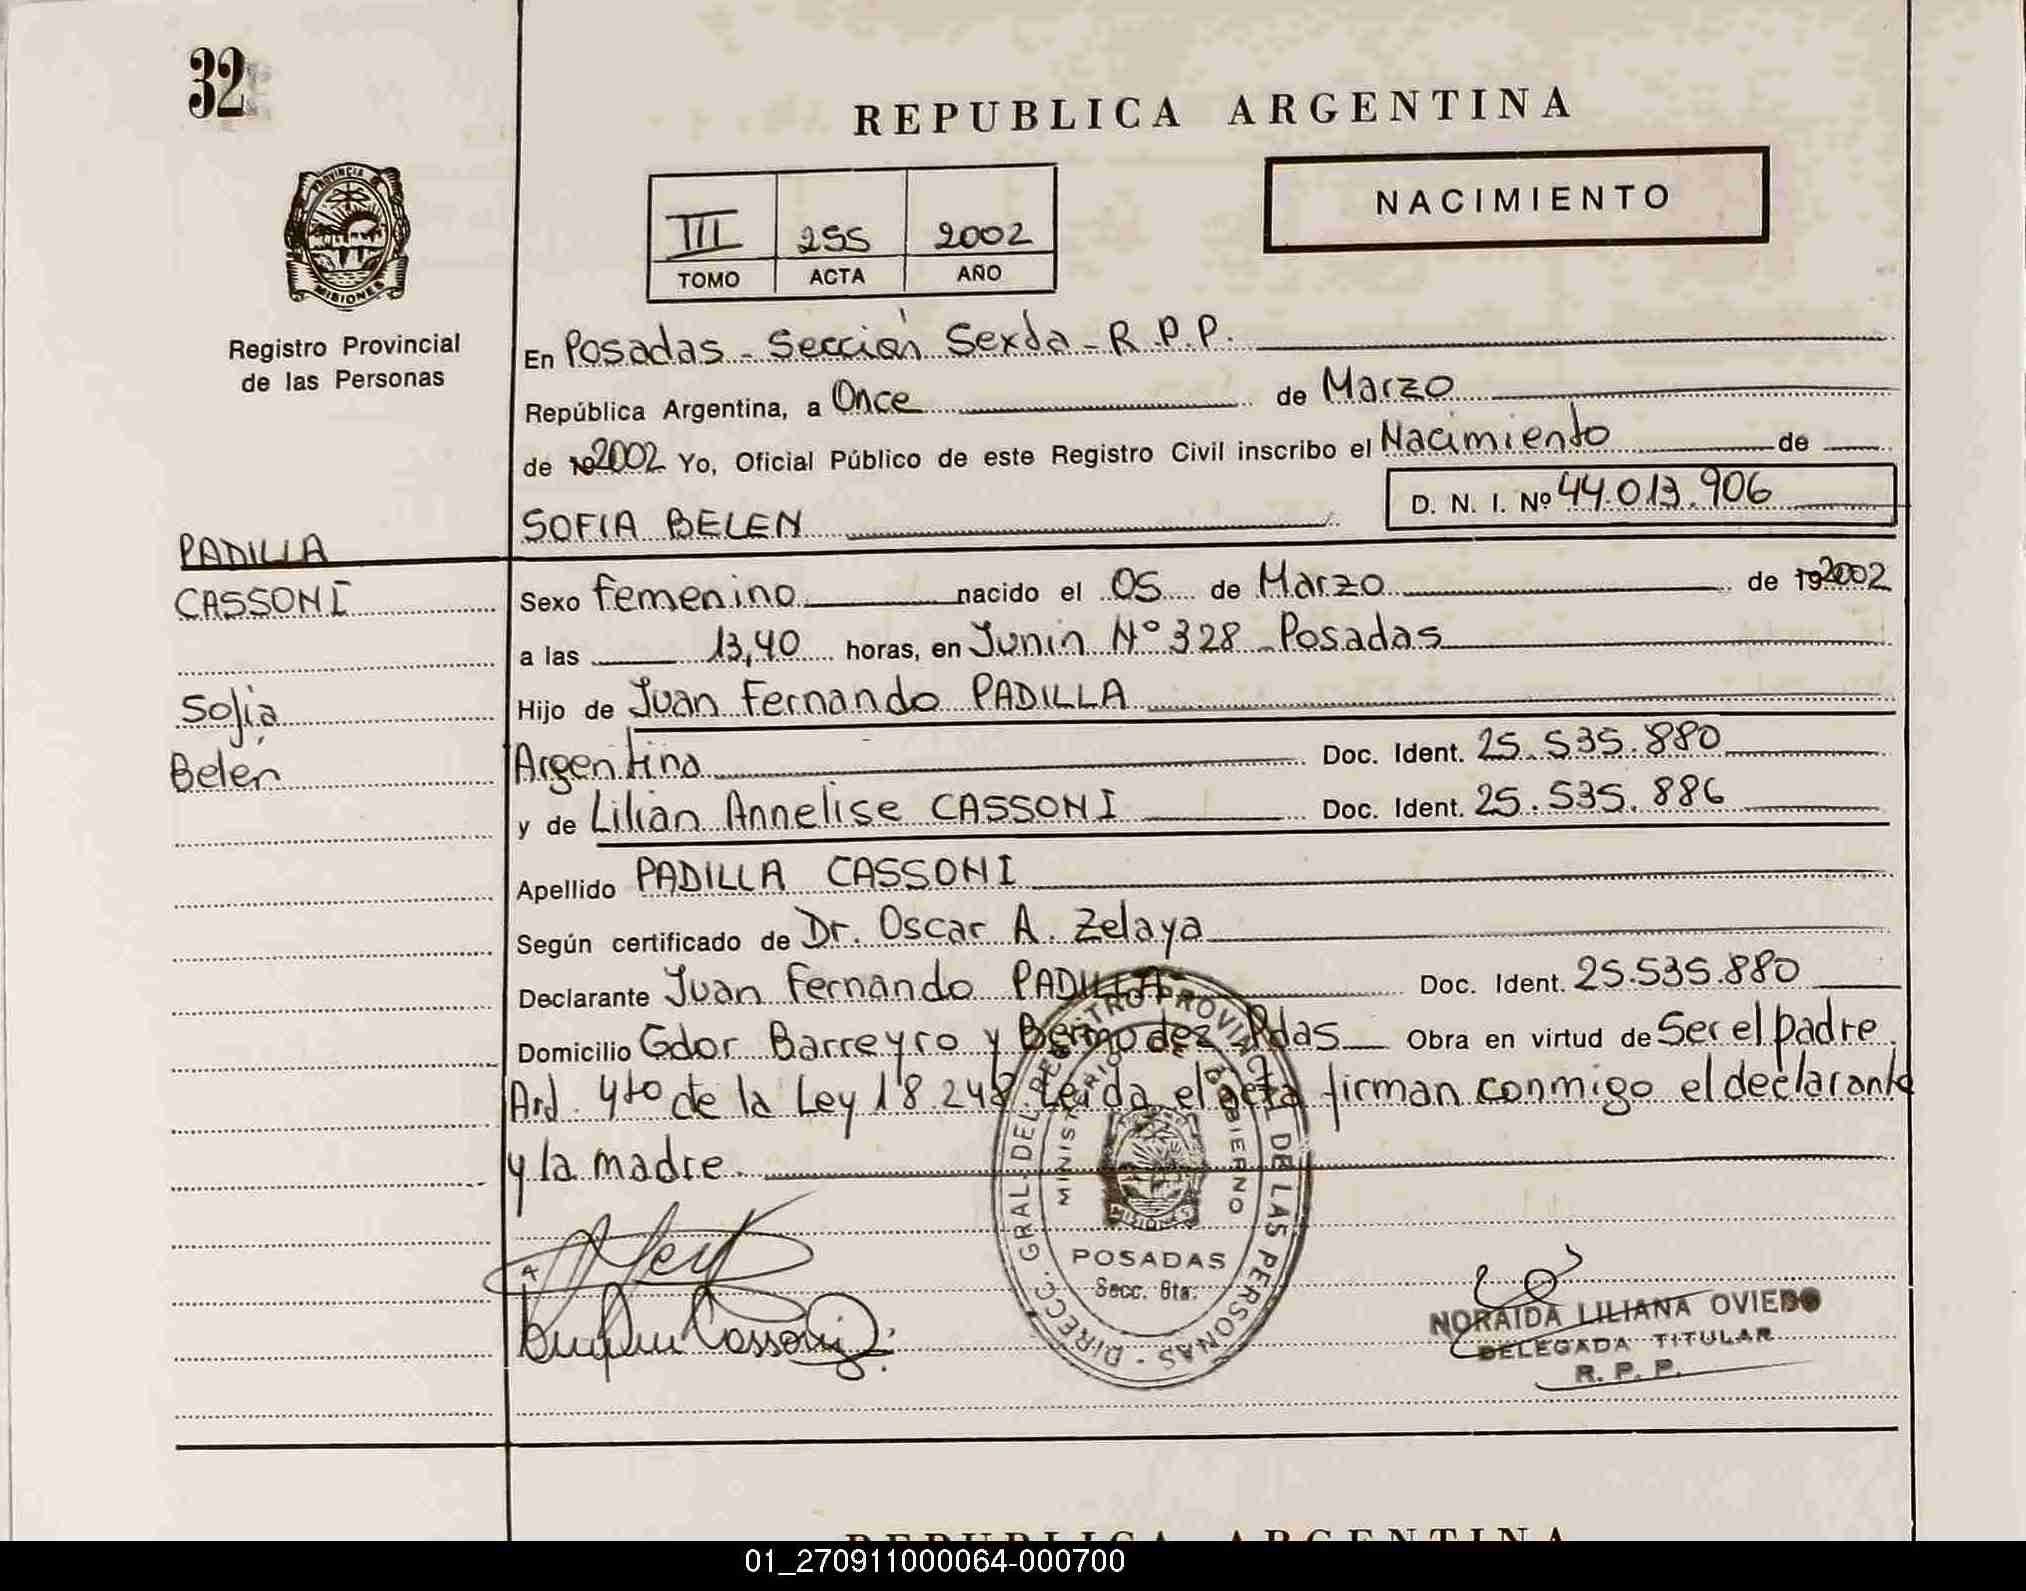 32
REPUBLICA ARGENTINA
NACIMIENTO
III 255 2002
TOMO ACTA AÑO
PROVINCIA
MISIONES
Registro Provincial
de las Personas
En Posadas - Sección Sexta - R.P.P.
República Argentina, a Once de Marzo
de 192002 Yo, Oficial Público de este Registro Civil inscribo el Nacimiento de
D. N. I. Nº 44.013.906
SOFIA BELEN
PADILLA
CASSONI
Sofia
Belén
Sexo femenino nacido el 05 de Marzo de 192002
a las 13,40 horas, en Junin Nº 328 - Posadas
Hijo de Juan Fernando PADILLA
Argentina Doc. Ident. 25.535.880
y de Lilian Annelise CASSONI Doc. Ident. 25.535.886
Apellido PADILLA CASSONI
Según certificado de Dr. Oscar A. Zelaya
Declarante Juan Fernando PADILLA Doc. Ident. 25.535.880
Domicilio Gdor Barreyro y Bermudez - Pdas Obra en virtud de Ser el padre.
Art. 4to de la Ley 18.248. Leida el acta firman conmigo el declarante
y la madre.
DIRECC. GRAL. DEL REGISTRO PROVINCIAL DE LAS PERSONAS
MINISTERIO GOBIERNO
POSADAS
Secc. 6ta.
Cassoni
NORAIDA LILIANA OVIEDO
DELEGADA TITULAR
R. P. P.
REPUBLICA ARGENTINA
01_270911000064-000700